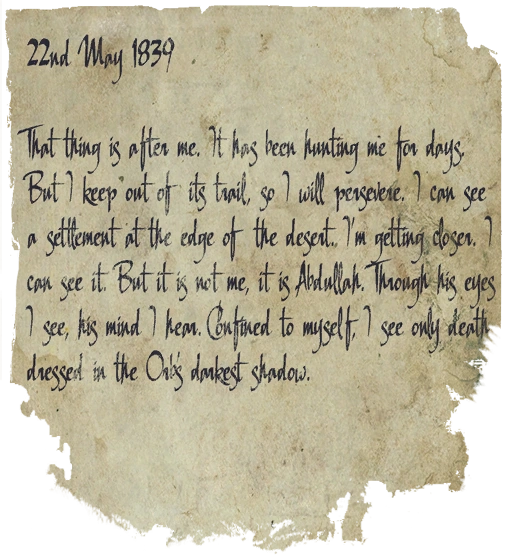 22nd May 1839
That thing is after me. It has been hunting me for days.
But I keep out of its trail, so I will persevere. I can see
a settlement at the edge of the desert. I'm getting closer. I
can see it. But it is not me, it is Abdullah. Through his eyes
I see, his mind I hear. Confined to myself, I see only death
dressed in the Orb's darkest shadow.